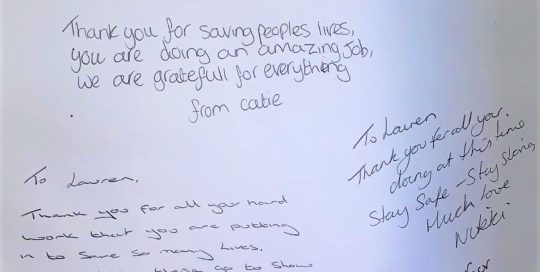 Thank you for saving peoples lives,
you are doing an amazing job,
we are gratefull for everything
from catie
To Lauren
Thank you for all your
doing at this time
Stay Safe - Stay Strong
Much love
Nikki
To Lauren,
Thank you for all your hand
work that you are putting
in to save so many lives.
these go to show
for